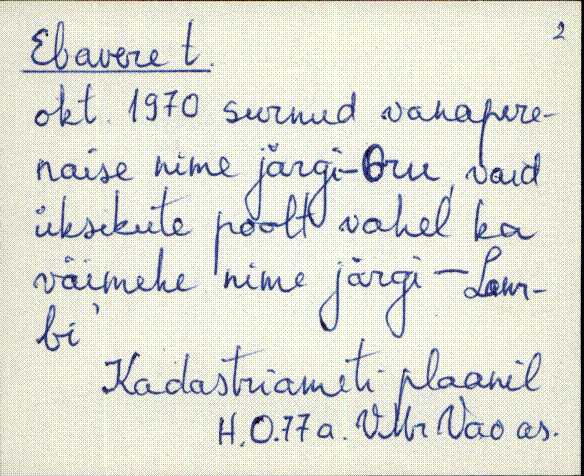 2
Ebavere t.
okt. 1970 surnud vanapere-
naise nime järgi-Oru, vaid
üksikute poolt vahel ka
väimehe nime järgi-Laur-
bi'
Kadastriameti plaanil
H.O.77a. VMr Vao as.